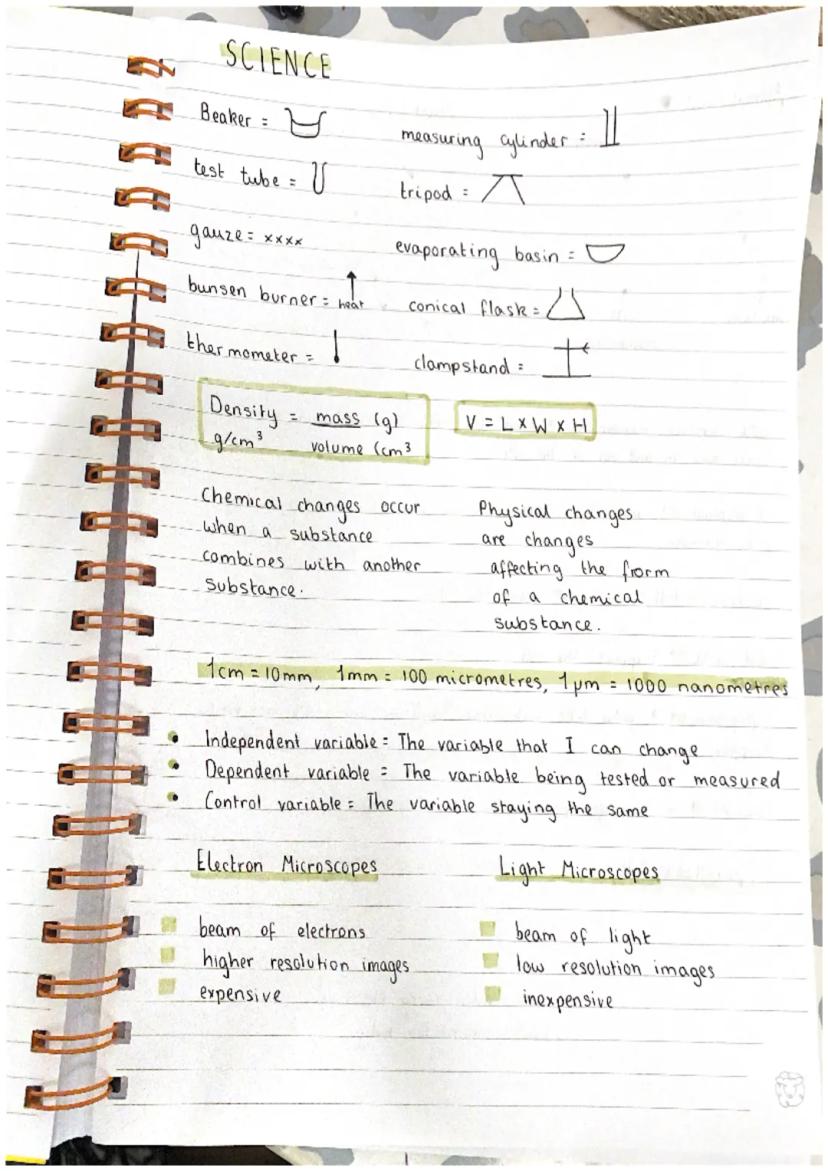 SCIENCE
Beaker =
measuring cylinder =
test tube =
tripod =
gauze = xxxx
evaporating basin =
bunsen burner = heat
conical flask =
thermometer =
clampstand =
Density = mass (g)
g/cm³ volume (cm³
V = L x W x H
Chemical changes occur
when a substance
combines with another
substance.
Physical changes
are changes
affecting the form
of a chemical
substance.
1cm = 10mm, 1mm = 100 micrometres, 1μm = 1000 nanometres
• Independent variable = The variable that I can change
• Dependent variable = The variable being tested or measured
• Control variable = The variable staying the same
Electron Microscopes
beam of electrons
higher resolution images
expensive
Light Microscopes
beam of light
low resolution images
inexpensive